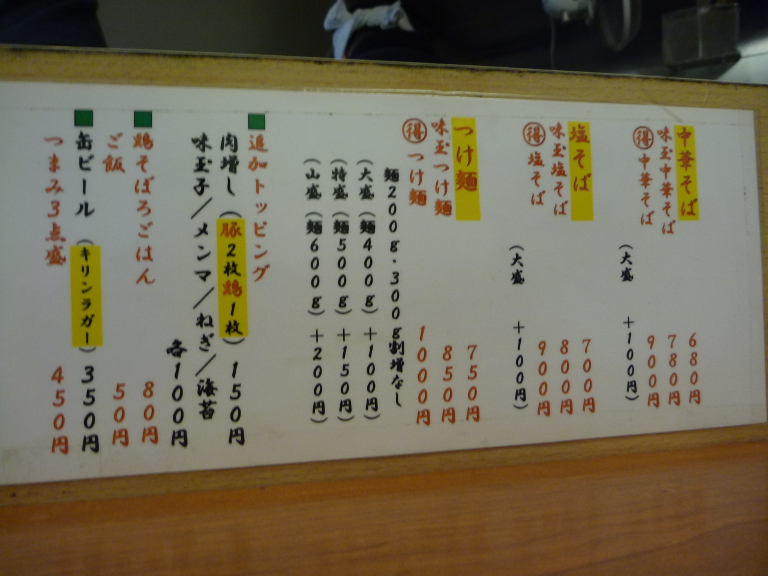 中華そば 680円
味玉中華そば 780円
得 中華そば 900円
(大盛 +100円)
塩そば 700円
味玉塩そば 800円
得 塩そば 900円
(大盛 +100円)
つけ麺 750円
味玉つけ麺 850円
得 つけ麺 1000円
麺200g・300g割増なし
(大盛(麺400g)+100円)
(特盛(麺500g)+150円)
(山盛(麺600g)+200円)
追加トッピング
肉増し(豚2枚鶏1枚)150円
味玉子/メンマ/ねぎ/海苔 各100円
鶏そぼろごはん 80円
ご飯 50円
缶ビール(キリンラガー)350円
つまみ3点盛 450円